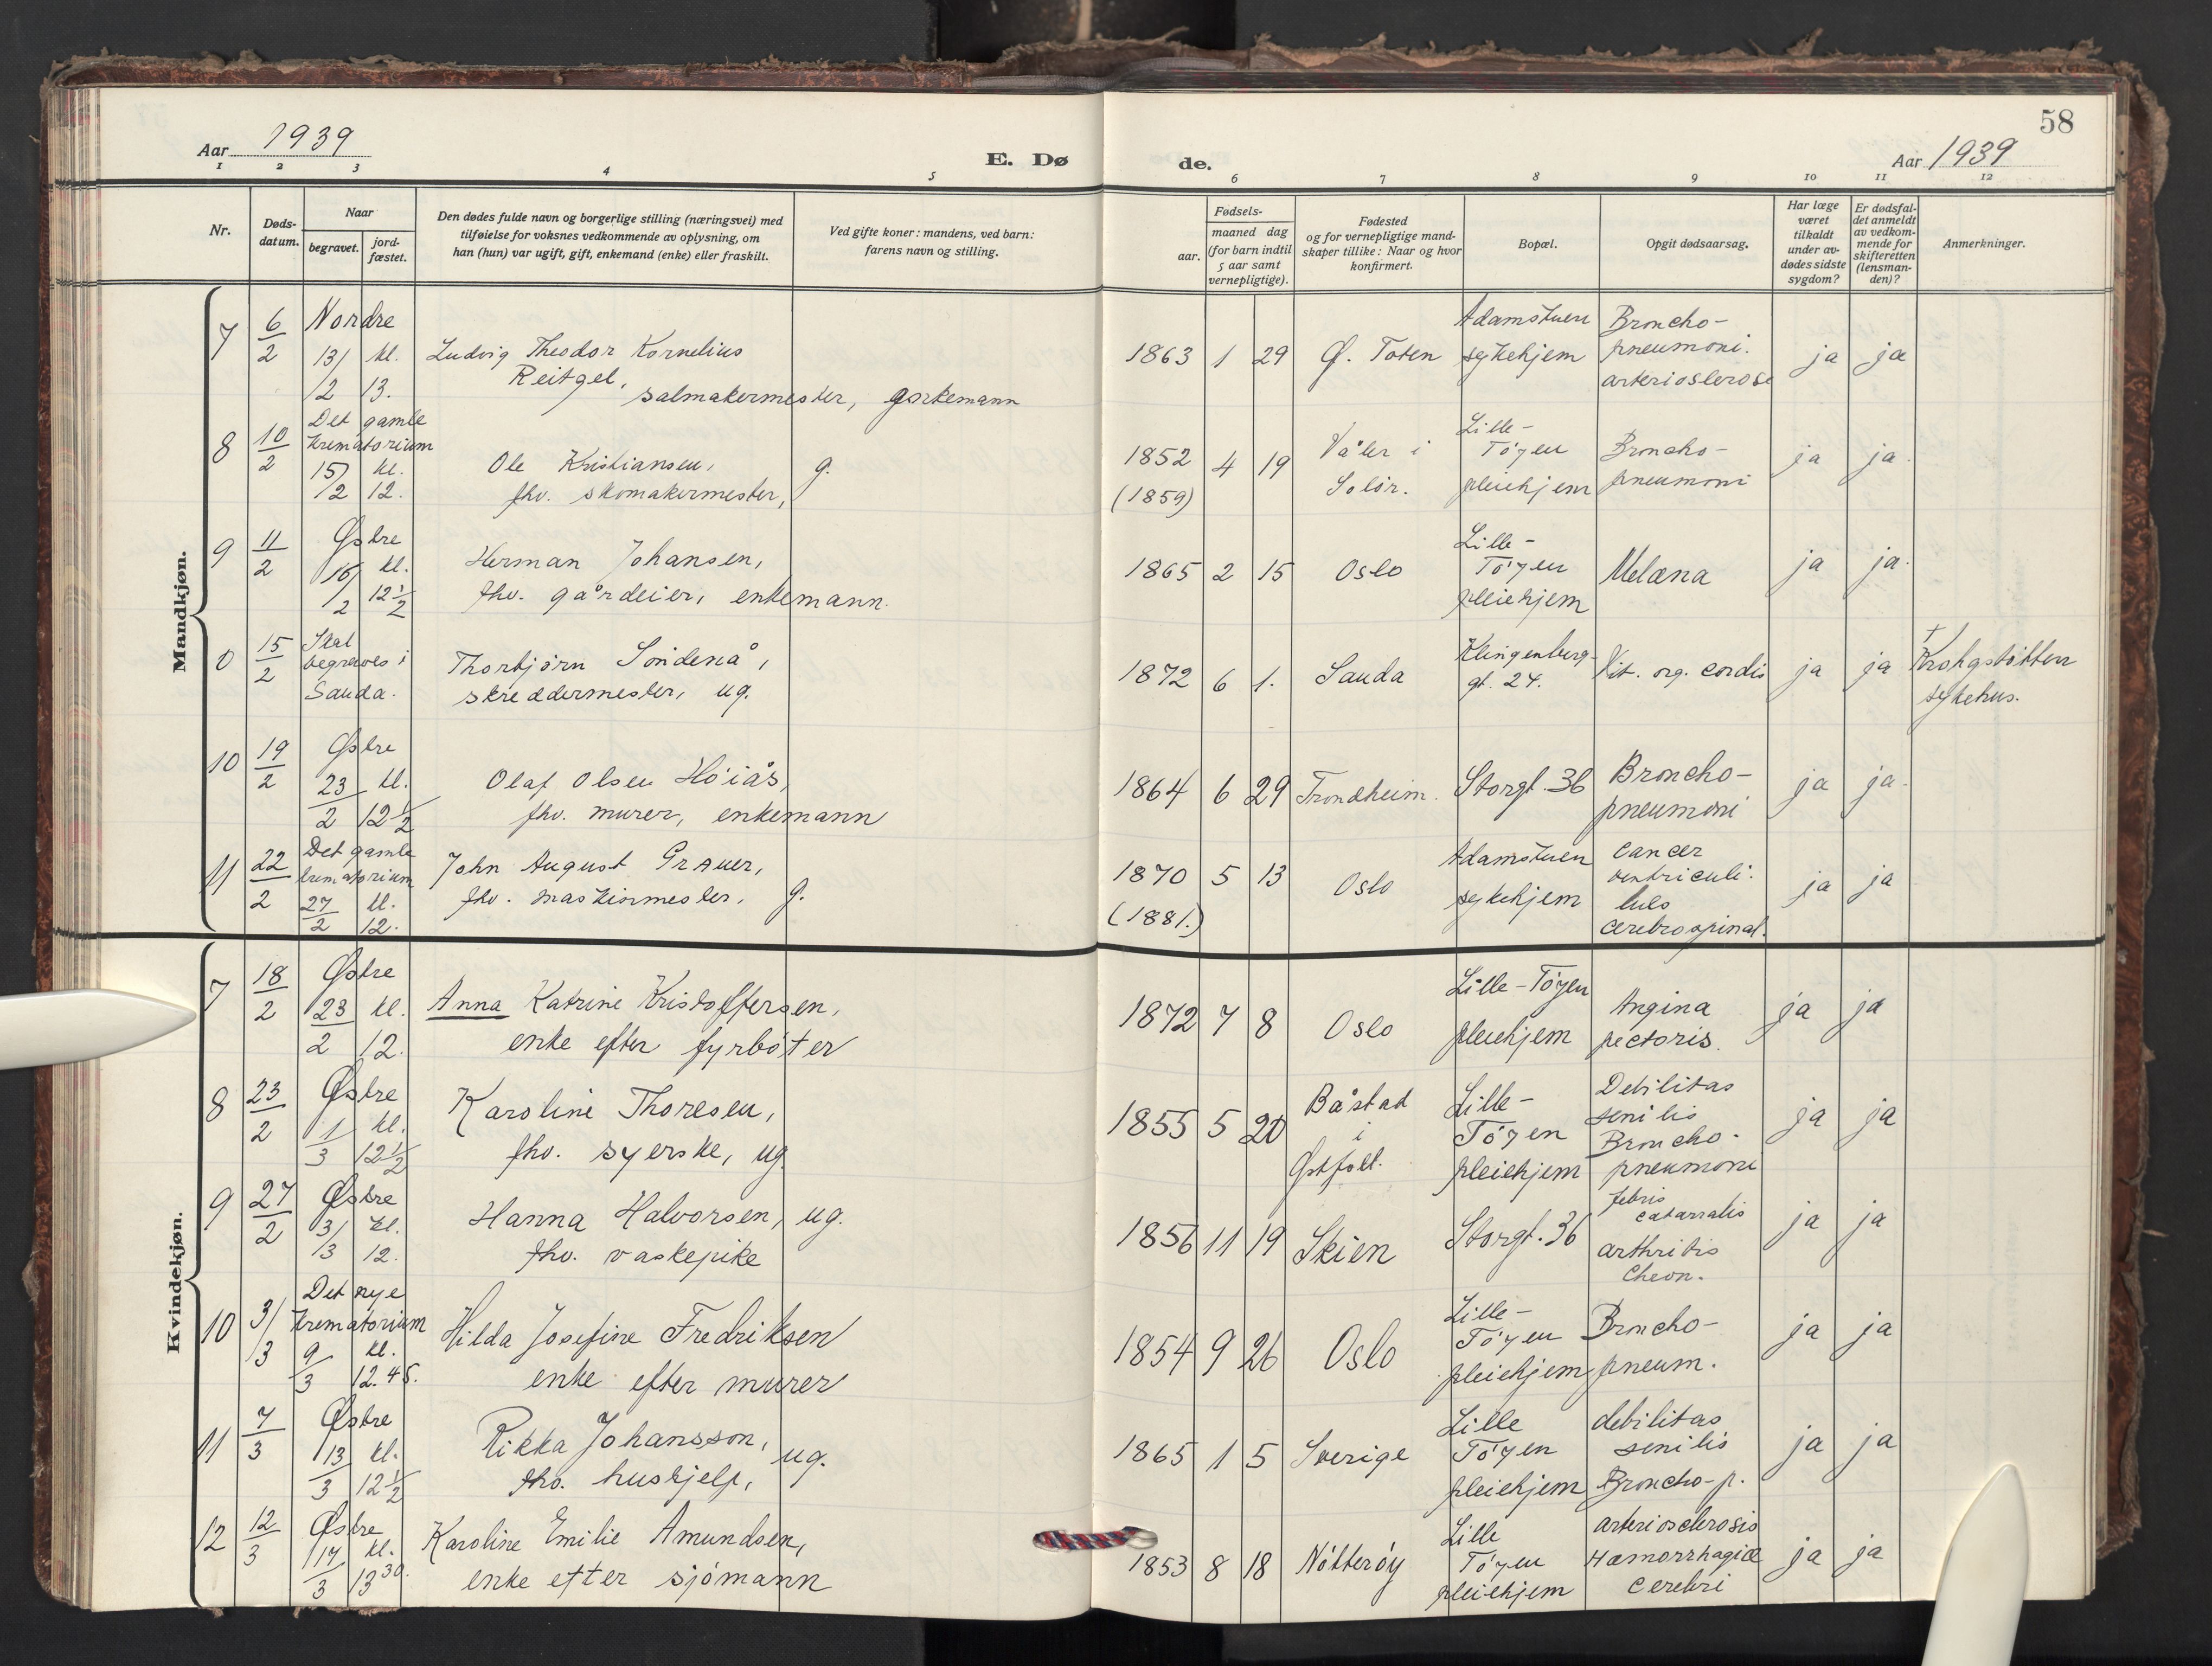 58
Aar 1939
E. Dø de.
Aar 1939
1 2 3 4 5 6 7 8 9 10 11 12
Nr.
Døds-
datum.
Naar
begravet.
jord-
fæstet.
Den dødes fulde navn og borgerlige stilling (næringsvei) med
tilføielse for voksnes vedkommende av oplysning, om
han (hun) var ugift, gift, enkemand (enke) eller fraskilt.
Ved gifte koner: mandens, ved barn:
farens navn og stilling.
Fødsels-
aar.
maaned dag
(for barn indtil
5 aar samt
vernepligtige).
Fødested
og for vernepligtige mand-
skaper tillike: Naar og hvor
konfirmert.
Bopæl.
Opgit dødsaarsag.
Har læge
været
tilkaldt
under av-
dødes sidste
sygdom?
Er dødsfal-
det anmeldt
av vedkom-
mende for
skifteretten
(lensman-
den)?
Anmerkninger.
Mandkjøn.
7
6/2
Nordre
13/2 kl. 13.
Ludvig Theodor Kornelius
Reitgel,
salmakermester, enkemann
1863 1 29
Ø. Toten
Adamstuen
sykehjem
Broncho-
pneumoni.
arterioslerose
ja ja
8
10/2
Det gamle
krematorium
15/2 kl. 12.
Ole Kristiansen,
fhv. skomakermester, g.
1852 4 19
(1859)
Våler i
Solör.
Lille-
Töyen
pleiehjem
Broncho-
pneumoni
ja ja.
9
11/2
Østre
16/2 kl. 12 1/2
Herman Johansen,
fhv. gårdeier, enkemann.
1865 2 15
Oslo
Lille-
Töyen
pleiehjem
Melæna
ja ja.
0
15/2
Skal
begraves i
Sauda.
Thorbjörn Söndenå,
skreddermester, ug.
1872 6 1.
Sauda
Klingenberg-
gt. 24.
Vit. org. cordis
ja ja
†
Krohgstötten
sykehus.
10
19/2
Østre
23/2 kl. 12 1/2
Olaf Olsen Höiås,
fhv. murer, enkemann
1864 6 29
Trondheim.
Storgt. 36
Broncho-
pneumoni
ja ja.
11
22/2
Det gamle
krematorium
27/2 kl. 12.
John August Grauer,
fhv. maskinmester, g.
1870 5 13
(1881.)
Oslo
Adamstuen
sykehjem
cancer
ventriculi.
lues
cerebrospinal.
ja ja
Kvindekjøn.
7
18/2
Østre
23/2 kl. 12.
Anna Katrine Kristoffersen,
enke efter fyrböter
1872 7 8
Oslo
Lille-Töyen
pleiehjem
Angina
pectoris.
ja ja
8
23/2
Østre
1/3 kl. 12 1/2
Karoline Thoresen,
fhv. syerske, ug.
1855 5 20
Båstad
i
Østfold.
Lille-
Töyen
pleiehjem
Debilitas
senilis
Broncho-
pneumoni
ja ja
9
27/2
Østre
3/3 kl. 12.
Hanna Halvorsen, ug.
fhv. vaskepike
1856 11 19
Skien
Storgt. 36
febris
catarralis
arthritis
Cheon.
ja ja
10
3/3
Det nye
Krematorium
9/3 kl. 12.45.
Hilda Josefine Fredriksen
enke efter murer
1854 9 26
Oslo
Lille-
Töyen
pleiehjem
Broncho-
pneum.
ja ja
11
7/3
Østre
13/3 kl. 12 1/2
Rikka Johansson, ug.
fhv. hushjelp,
1865 1 5
Sverige
Lille
Töyen
pleiehjem
debilitas
senilis
Broncho-p.
ja ja
12
12/3
Østre
17/3 kl. 13 30.
Karoline Emilie Amundsen,
enke efter sjömann
1853 8 18
Nötteröy
Lille
Töyen
pleiehjem
arteriosclerosis
Hæmorrhagiæ
cerebri
ja ja